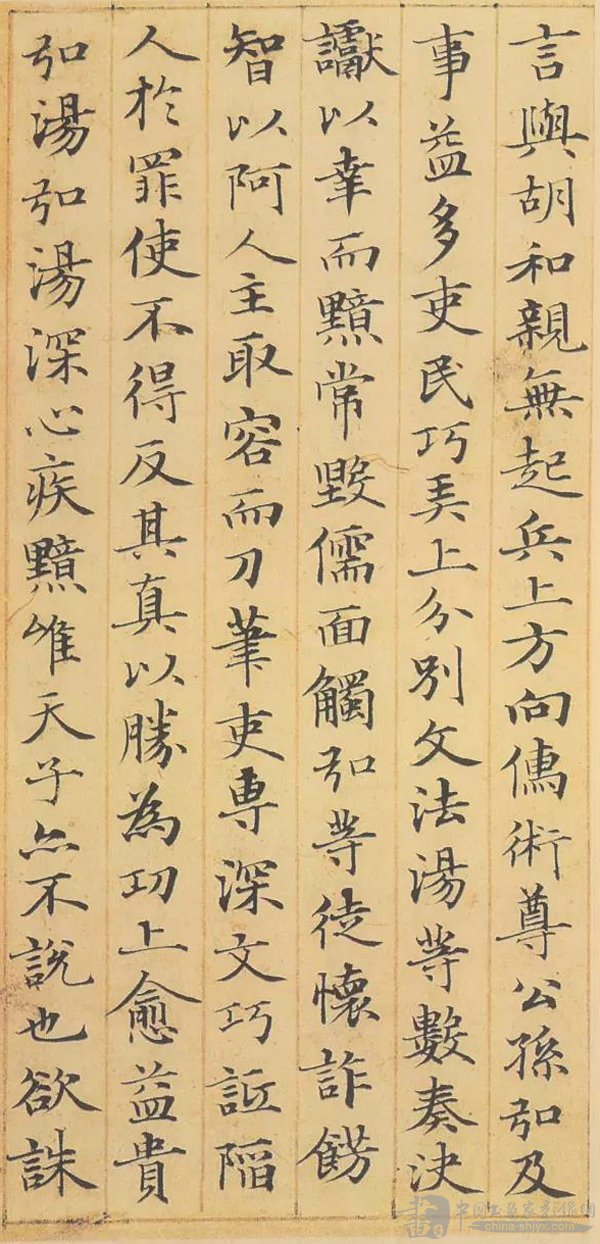 言與胡和親無起兵上方向儒術尊公孫弘及
事益多吏民巧弄上分別文法湯等數奏決
讞以幸而黯常毀儒面觸弘等徒懷詐飾
智以阿人主取容而刀筆吏專深文巧詆陷
人於罪使不得反其真以勝為功上愈益貴
弘湯弘湯深心疾黯唯天子亦不說也欲誅
china-shjyx.com